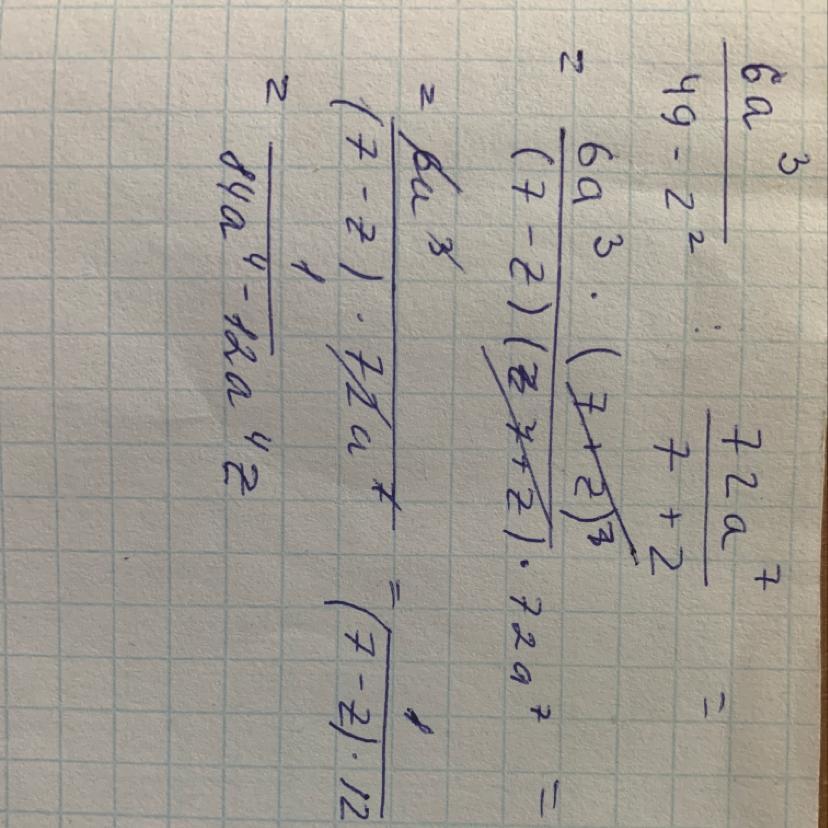 6a³ / 49 - z² : 72a⁷ / 7 + z =
= 6a³ · (7 + z) / (7 - z)(7 + z) · 72a⁷ =
= 6a³ / (7 - z) · 72a⁷ = 1 / (7 - z) · 12
= 1 / 84a⁴ - 12a⁴z